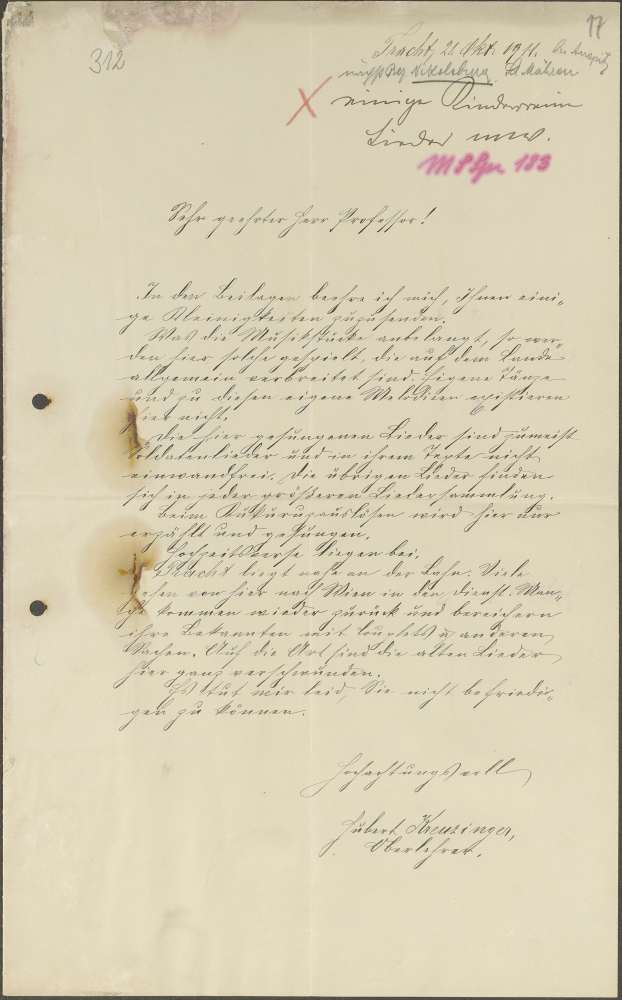 17
312
Tracht, 21. Okt. 1911.
Nikolsburg Mähren
X einige Kinderreime
Lieder usw.
183
Sehr geehrter Herr Professor!
In den Beilagen beehre ich mich, Ihnen eini-
ge Kleinigkeiten zuzusenden.
Was die Musikstücke anbelangt, so wer-
den hier solche gespielt, die auf dem Lande
allgemein verbreitet sind. Eigene Tänze
und zu diesen eigene Melodien existieren
hier nicht.
Die hier gesungenen Lieder sind zumeist
Soldatenlieder und in ihrem Texte nicht
einwandfrei. Die übrigen Lieder finden
sich in jeder größeren Liedersammlung.
Beim Kukuruzauslösen wird hier nur
erzählt und gesungen.
Hochzeitsverse liegen bei.
Tracht liegt nahe an der Bahn. Viele
gehen von hier nach Wien in den Dienst. Man-
che kommen wieder zurück und bereichern
ihre Bekannten mit Couplets u. anderen
Sachen. Auf die Art sind die alten Lieder
hier ganz verschwunden.
Es tut mir leid, Sie nicht befriedi-
gen zu können.
Hochachtungsvoll
Hubert Kreuzinger,
Oberlehrer.